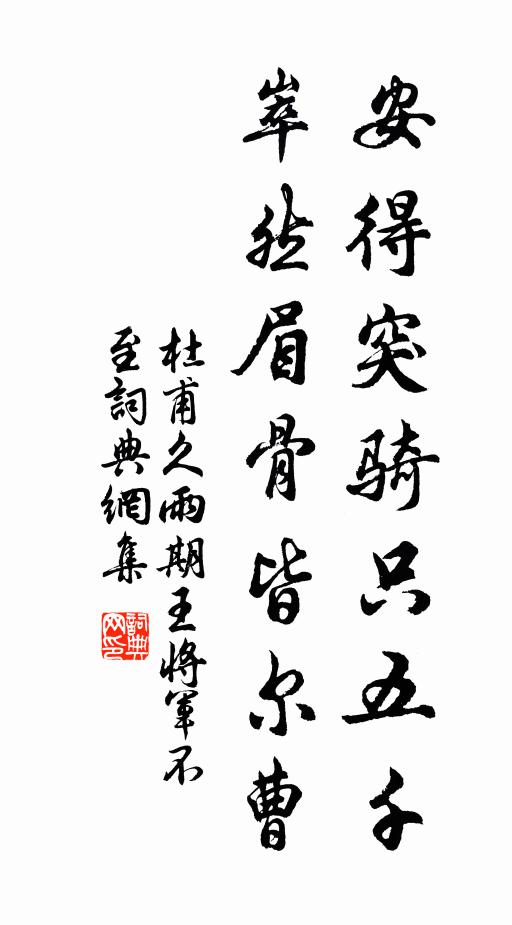 安得突骑只五千
崒然眉骨皆尔曹
杜甫久雨期王将軍不
至詞典網集
詞典
网印